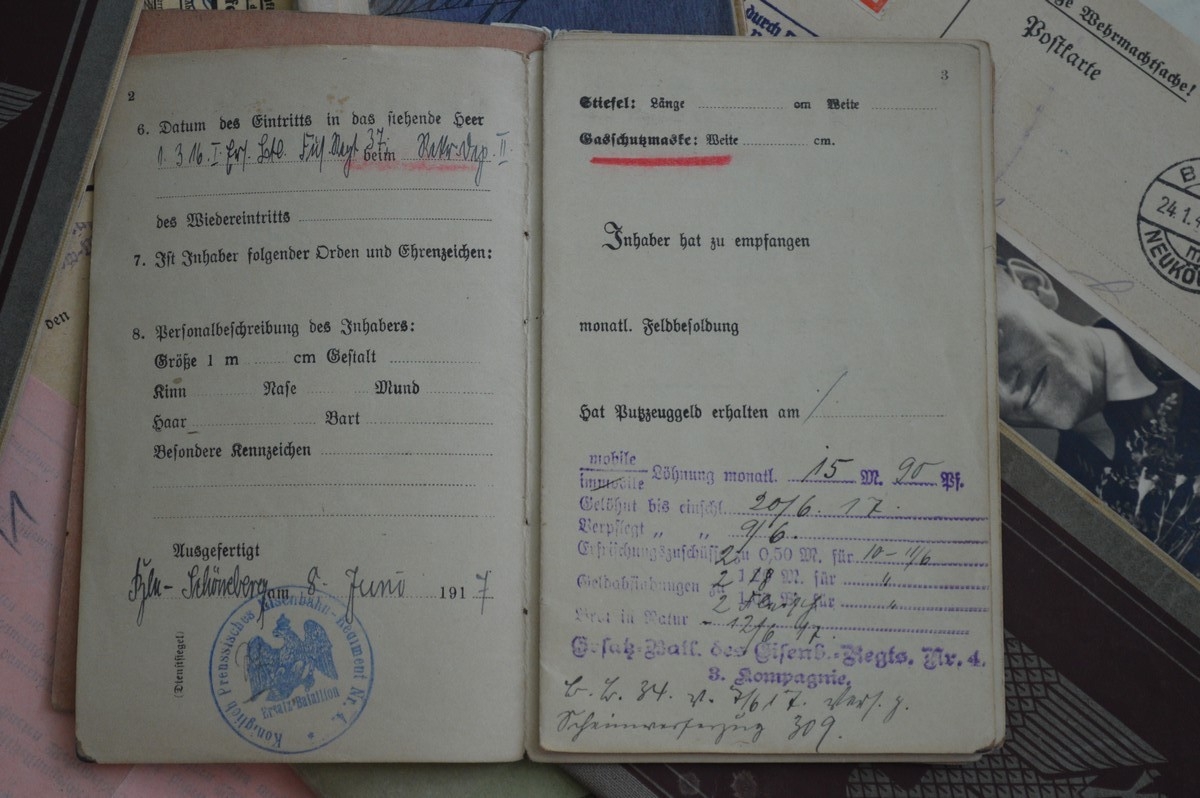 2
6. Datum des Eintritts in das stehende Heer
1. 3 16. I. Ers. Füs. Regt 37. beim Rekr. Dep. II.
des Wiedereintritts
7. Ist Inhaber folgender Orden und Ehrenzeichen:
8. Personalbeschreibung des Inhabers:
Größe 1 m cm Gestalt
Kinn Nase Mund
Haar Bart
Besondere Kennzeichen
Ausgefertigt
Schöneberg am 8. Juni 1917
(Dienstsiegel)
Königlich Preussisches Eisenbahn-Regiment Nr. 4.
Ersatz-Bataillon
3
Stiefel: Länge cm Weite
Gasschutzmaske: Weite cm.
Inhaber hat zu empfangen
monatl. Feldbesoldung
Hat Putzzeuggeld erhalten am /
mobile
immobile Löhnung monatl. 15 M. 90 Pf.
Gelöhnt bis einschl. 20/6. 17.
Verpflegt " " 9/6.
Erfrischungszuschüsse 2 zu 0,50 M. für 10-11/6
Geldabfindungen zu 2 M. für "
2 M. für "
Brot in Natur - 12/6 17.
Ersatz-Batl. des Eisenb.-Regts. Nr. 4.
3. Kompagnie.
B. B. 34. v. 7/6 17. vers. z.
Scheinwerferzug 309.
den
durch
Wehrmachtsache!
Postkarte
24.1.4
NEUKÖ